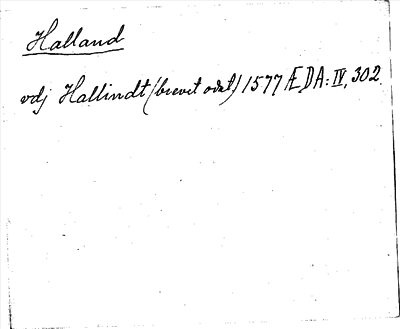 Halland
vdj Hallindt (brevet odat) 1577 ÆDA: IV, 302.